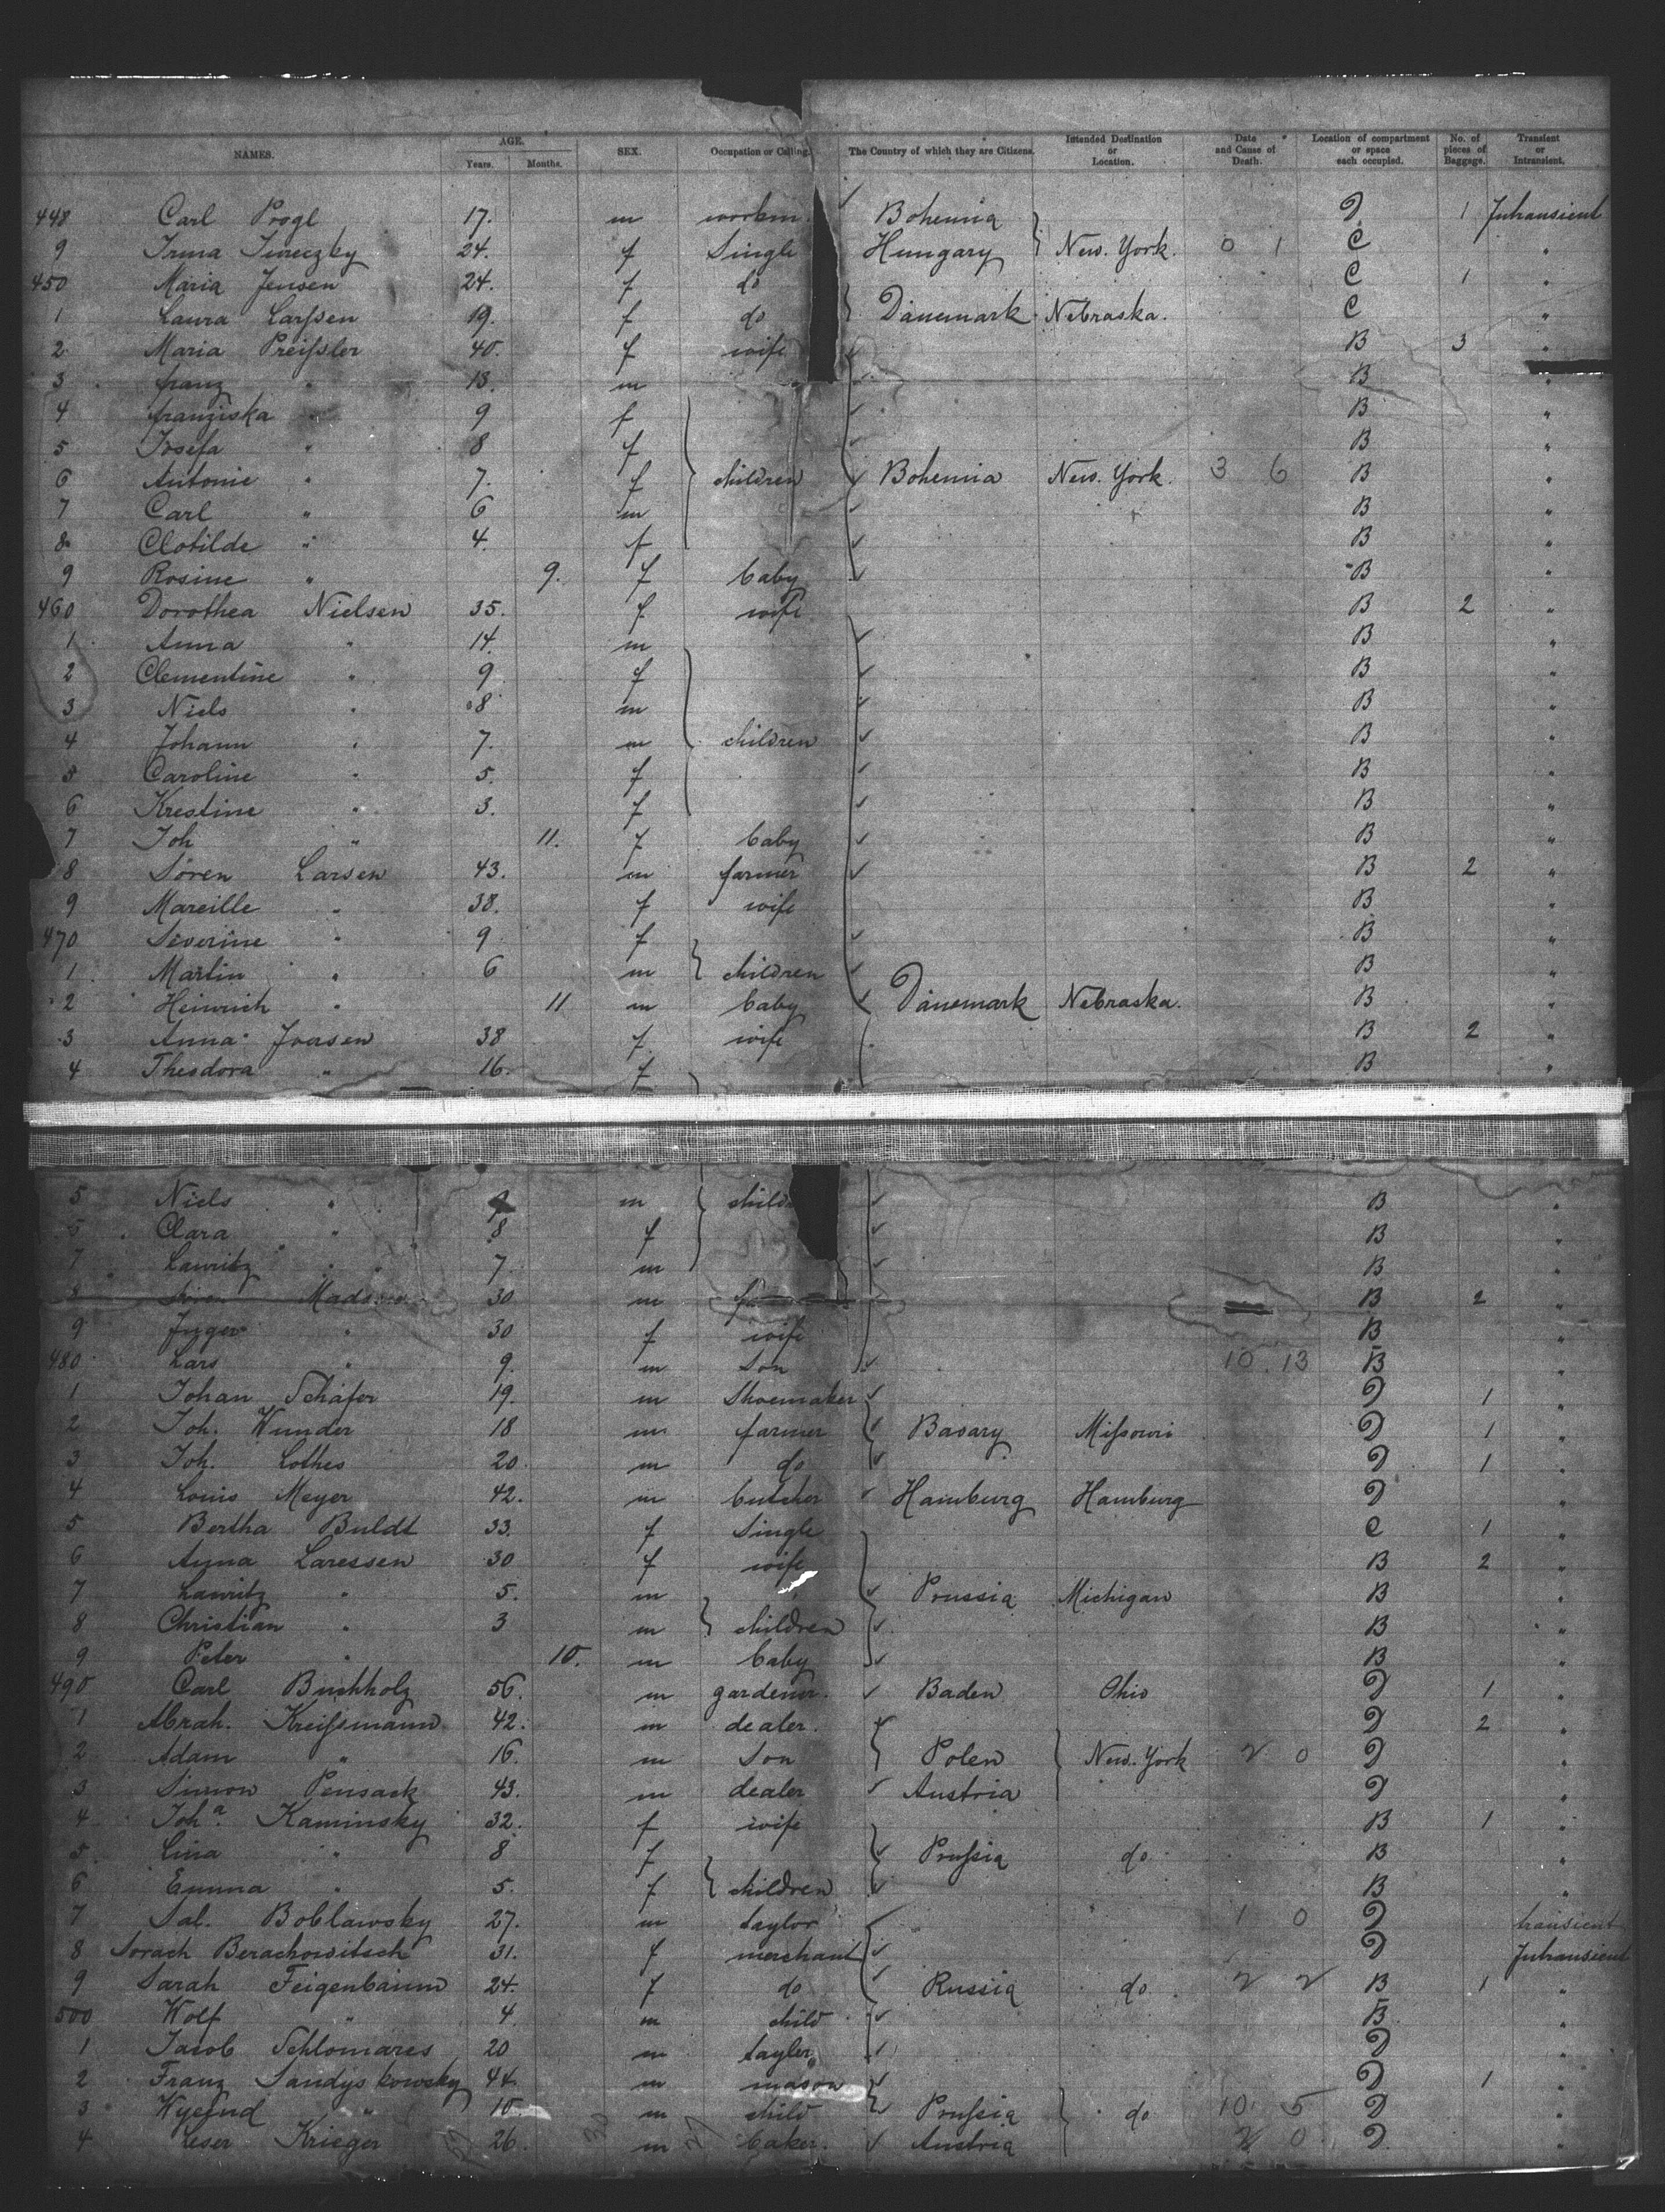 NAMES. AGE. Years. Months. SEX. Occupation or Calling. The Country of which they are Citizens. Intended Destination or Location. Date and Cause of Death. Location of compartment or space each occupied. No. of pieces of Baggage. Transient or Intransient.
448 Carl Progl 17. m workm. Bohemia D 1 Intransient
9 Irma 24. f Single Hungary New. York. 0 1 C "
450 Maria Jensen 24. f do C 1 "
1 Laura Larſsen 19. f do Dänemark Nebraska. C "
2 Maria Preiſsler 40. f wife B 3 "
3 franz " 13. m B "
4 franziska " 9 f B "
5 Josefa " 8 f B "
6 Antonie " 7. f children Bohemia New. York. 3 6 B "
7 Carl " 6 m B "
8 Clotilde " 4. f B "
9 Rosine " 9. f baby B "
460 Dorothea Nielsen 35. f wife B 2 "
1 Anna " 14. m B "
2 Clementine " 9 f B "
3 Niels " 8 m B "
4 Johann " 7. m children B "
5 Caroline " 5. f B "
6 Krestine " 3. f B "
7 Joh " 11. f baby B "
8 Sören Larsen 43. m farmer B 2 "
9 Mareille " 38. f wife B "
470 Severine " 9 f B "
1 Martin " 6 m children B "
2 Heinrich " 11 m baby Dänemark Nebraska. B "
3 Anna Iversen 38 f wife B 2 "
4 Theodora " 16. f B "
5 Niels " 9 m child B "
6 Clara " 8 f B "
7 Lauritz " 7. m B "
8 Sören Madsen 30 m B 2 "
9 Inger " 30 f wife B "
480 Lars " 9. m Son 10. 13 B "
1 Johan Schäfer 19. m Shoemaker D 1 "
2 Joh. Wunder 18 m farmer Bavary Miſsouri D 1 "
3 Joh. Lothes 20 m do D 1 "
4 Louis Meyer 42. m butcher Hamburg Hamburg D "
5 Bertha Buldt 33. f Single C 1 "
6 Anna Laressen 30 f wife B 2 "
7 Lauritz " 5. m Prussia Michigan B "
8 Christian " 3 m children B "
9 Peter " 10. m baby B "
490 Carl Buchholz 56. m gardener. Baden Ohio D 1 "
1 Abrah. Kreiſsmann 42. m dealer. D 2 "
2 Adam " 16. m Son Polen New. York 2 0 D "
3 Simon Pensack 43. m dealer Austria D "
4 Joh.a Kaminsky 32. f wife B 1 "
5 Lina " 8 f Pruſsia do B "
6 Emma " 5. f children B "
7 Sal. Boblawsky 27. m taylor 1 0 D transient
8 Sorach Berachowitsch 31. f merchant D Intransient
9 Sarah Feigenbaum 24. f do Russia do 2 2 B 1 "
500 Wolf " 4. m child B "
1 Jacob Schlomares 20 m tayler D "
2 Franz Sandyskowsky 44. m mason D 1 "
3 " 10. m child Pruſsia do 10 5 D "
4 Leser Krieger 26. m baker. Austria 2 0 D "